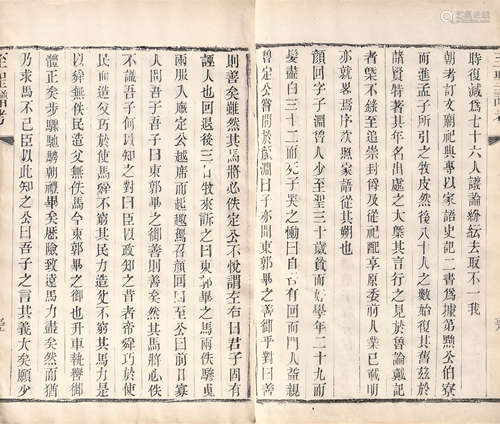 時復減爲七十六人議論紛紜去取不一我
朝考訂文廟祀典專以家語史記二書爲據第黜公伯寮
而進孟子所引之牧皮然後八十人之數始復其舊茲於
諸賢特著其年名出處之大槩其言行之見於魯論戴記
者槩不錄至追崇封爵及從祀配享原委前人已載明
亦就畧焉序次照蒙語從其朔也
顏回字子淵魯人少至聖三十歲貧而好學年二十九而
髮盡白三十二而死子哭之慟曰自吾有回而門人益親
魯定公嘗問於顏淵曰子亦聞東郭畢之善御乎對曰善
則善矣雖然其馬將必佚定公不悅謂左右曰君子固有
誣人也回退後三日牧來訴之曰東郭畢之馬兩佚驂曳
兩服入廐定公越席而起趣駕召顏回回至公曰前日寡
人問吾子吾子曰東郭畢之御善則善矣然其馬將必佚
不識吾子何以知之對曰臣以政知之昔者帝舜巧於使
民而造父巧於使馬舜不窮其民力造父不窮其馬力是
以舜無佚民造父無佚馬今東郭畢之御也升車執轡御
體正矣步驟馳騁朝禮畢矣歷險致遠馬力盡矣然而猶
乃求馬不已臣以此知之公曰吾子之言其義大矣願少